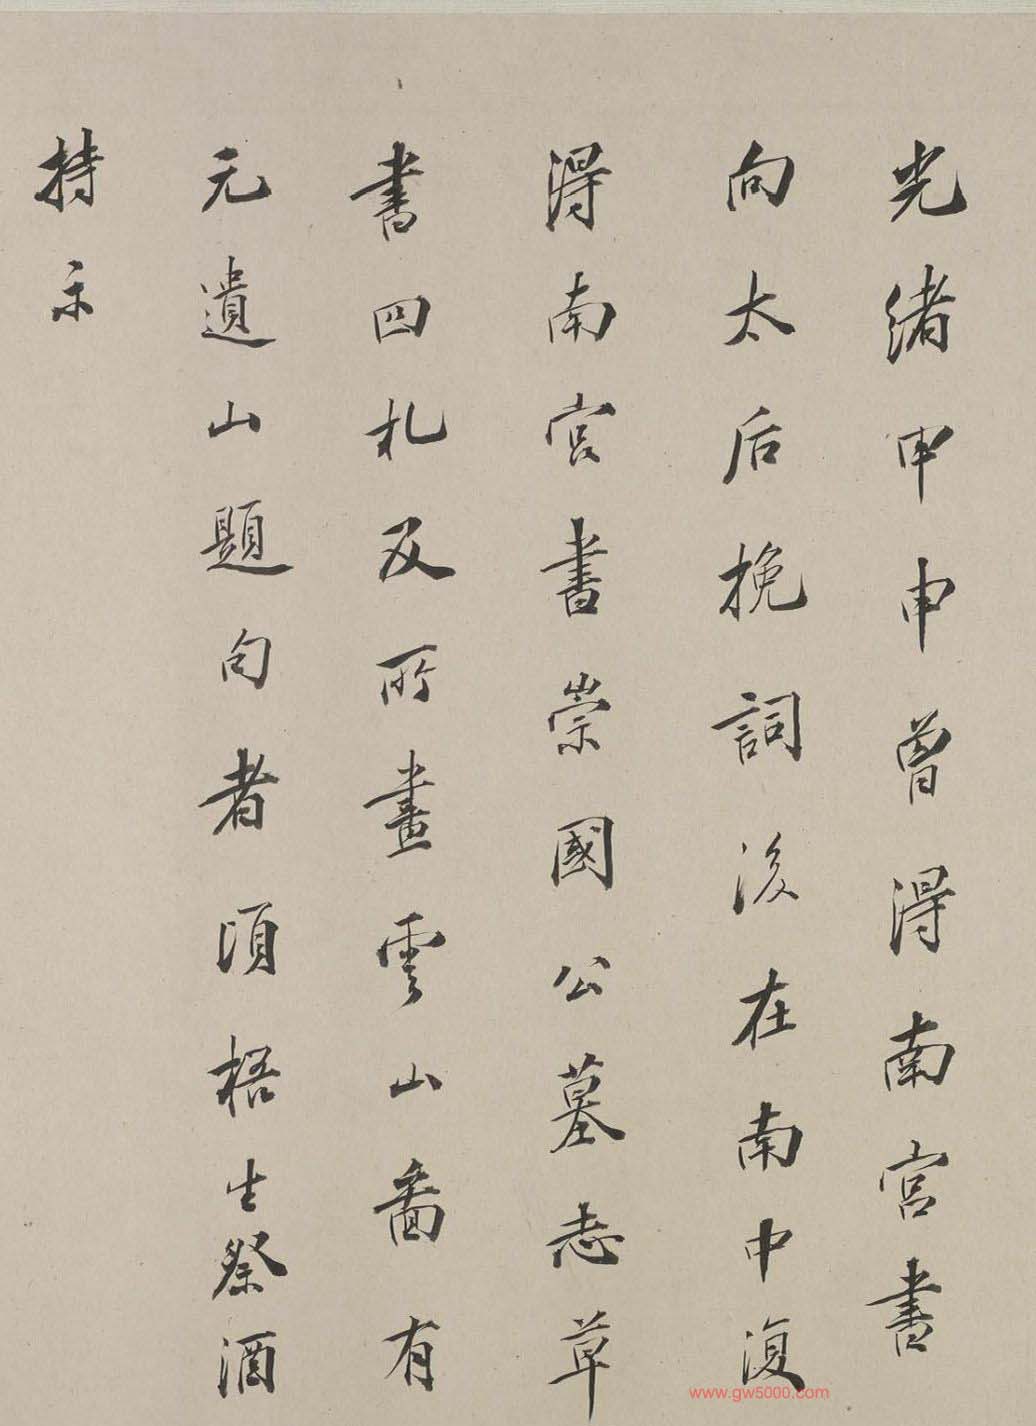 光緒甲申曾得南宮書
向太后挽詞後在南中復
得南宮書崇國公墓志草
書四札及所畫雲山啚有
元遺山題句者頃梧生祭酒
持示
www.gw5000.com